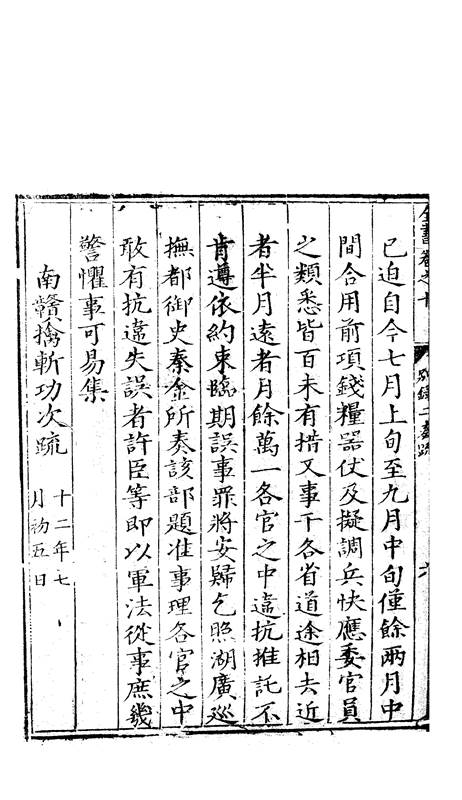 全書卷之十 別錄二奏疏 六
已迫自今七月上旬至九月中旬僅餘兩月中
間合用前項錢糧器仗及擬調兵快應委官員
之類悉皆百未有措又事干各省道途相去近
者半月遠者月餘萬一各官之中違抗推託不
肯遵依約束臨期誤事罪將安歸乞照湖廣巡
撫都御史秦金所奏該部題准事理各官之中
敢有抗違失誤者許臣等即以軍法從事庶幾
警懼事可易集
南贛擒斬功次疏
十二年七
月初五日